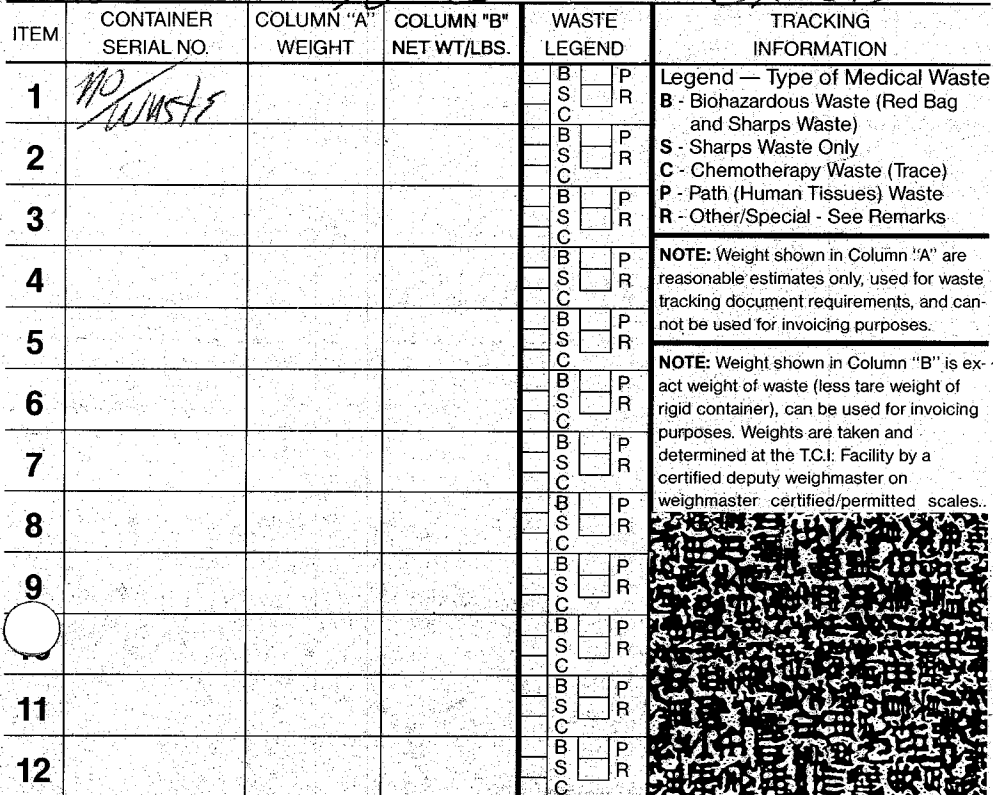 ITEM CONTAINER SERIAL NO. COLUMN "A" WEIGHT COLUMN "B" NET WT/LBS. WASTE LEGEND TRACKING INFORMATION
1 NO WASTE B S C P R
2 B S C P R
3 B S C P R
4 B S C P R
5 B S C P R
6 B S C P R
7 B S C P R
8 B S C P R
9 B S C P R
B S C P R
11 B S C P R
12 B S C P R
Legend — Type of Medical Waste
B - Biohazardous Waste (Red Bag
and Sharps Waste)
S - Sharps Waste Only
C - Chemotherapy Waste (Trace)
P - Path (Human Tissues) Waste
R - Other/Special - See Remarks
NOTE: Weight shown in Column "A" are
reasonable estimates only, used for waste
tracking document requirements, and can-
not be used for invoicing purposes.
NOTE: Weight shown in Column "B" is ex-
act weight of waste (less tare weight of
rigid container), can be used for invoicing
purposes. Weights are taken and
determined at the T.C.I: Facility by a
certified deputy weighmaster on
weighmaster certified/permitted scales.